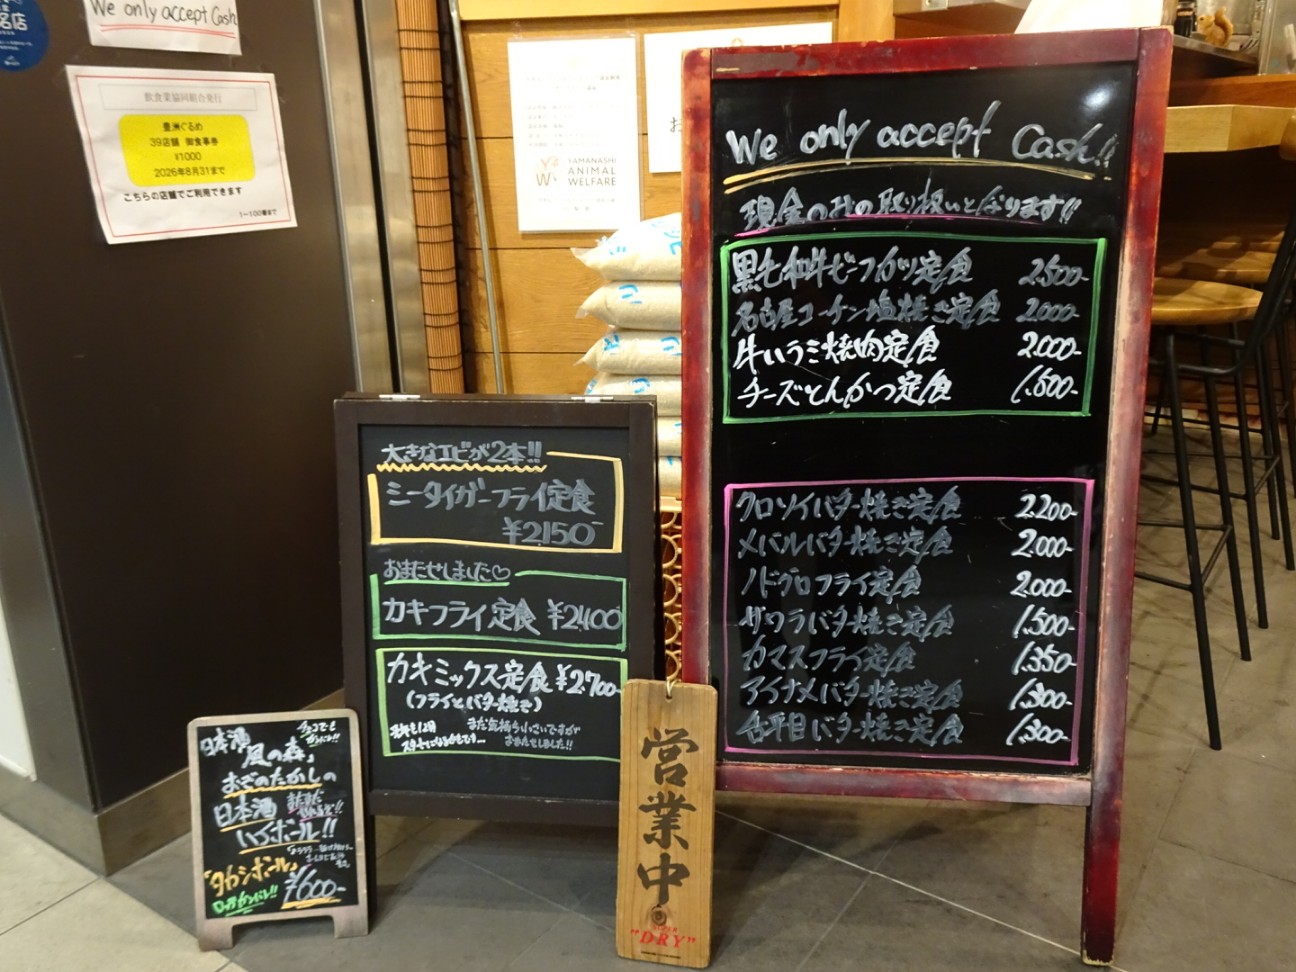 We only accept Cash
飲食業協同組合発行
豊洲ぐるめ
39店舗 御食事券
¥1000
2026年8月31まで
こちらの店舗でご利用できます
1〜100番まで
YAMANASHI
ANIMAL
WELFARE
We only accept Cash!!
現金のみの取り扱いとなります!!
黒毛和牛ビーフカツ定食 2,500-
名古屋コーチン塩焼き定食 2,000-
牛ハラミ焼肉定食 2,000-
チーズとんかつ定食 1,500-
クロソイバター焼き定食 2,200-
メバルバター焼き定食 2,000-
ノドグロフライ定食 2,000-
サワラバター焼き定食 1,500-
カマスフライ定食 1,350-
アイナメバター焼き定食 1,300-
舌平目バター焼き定食 1,300-
大きなエビが2本!!
シータイガーフライ定食
¥2150-
おまたせしました♡
カキフライ定食 ¥2400
カキミックス定食 ¥2,700-
(フライとバター焼き)
まだ気持ち小さいですが
おまたせしました!!
日本酒
「風の森」
おざのたかしの
日本酒
ハイボール!!
「タカシボール」
¥600-
営業中
"DRY"